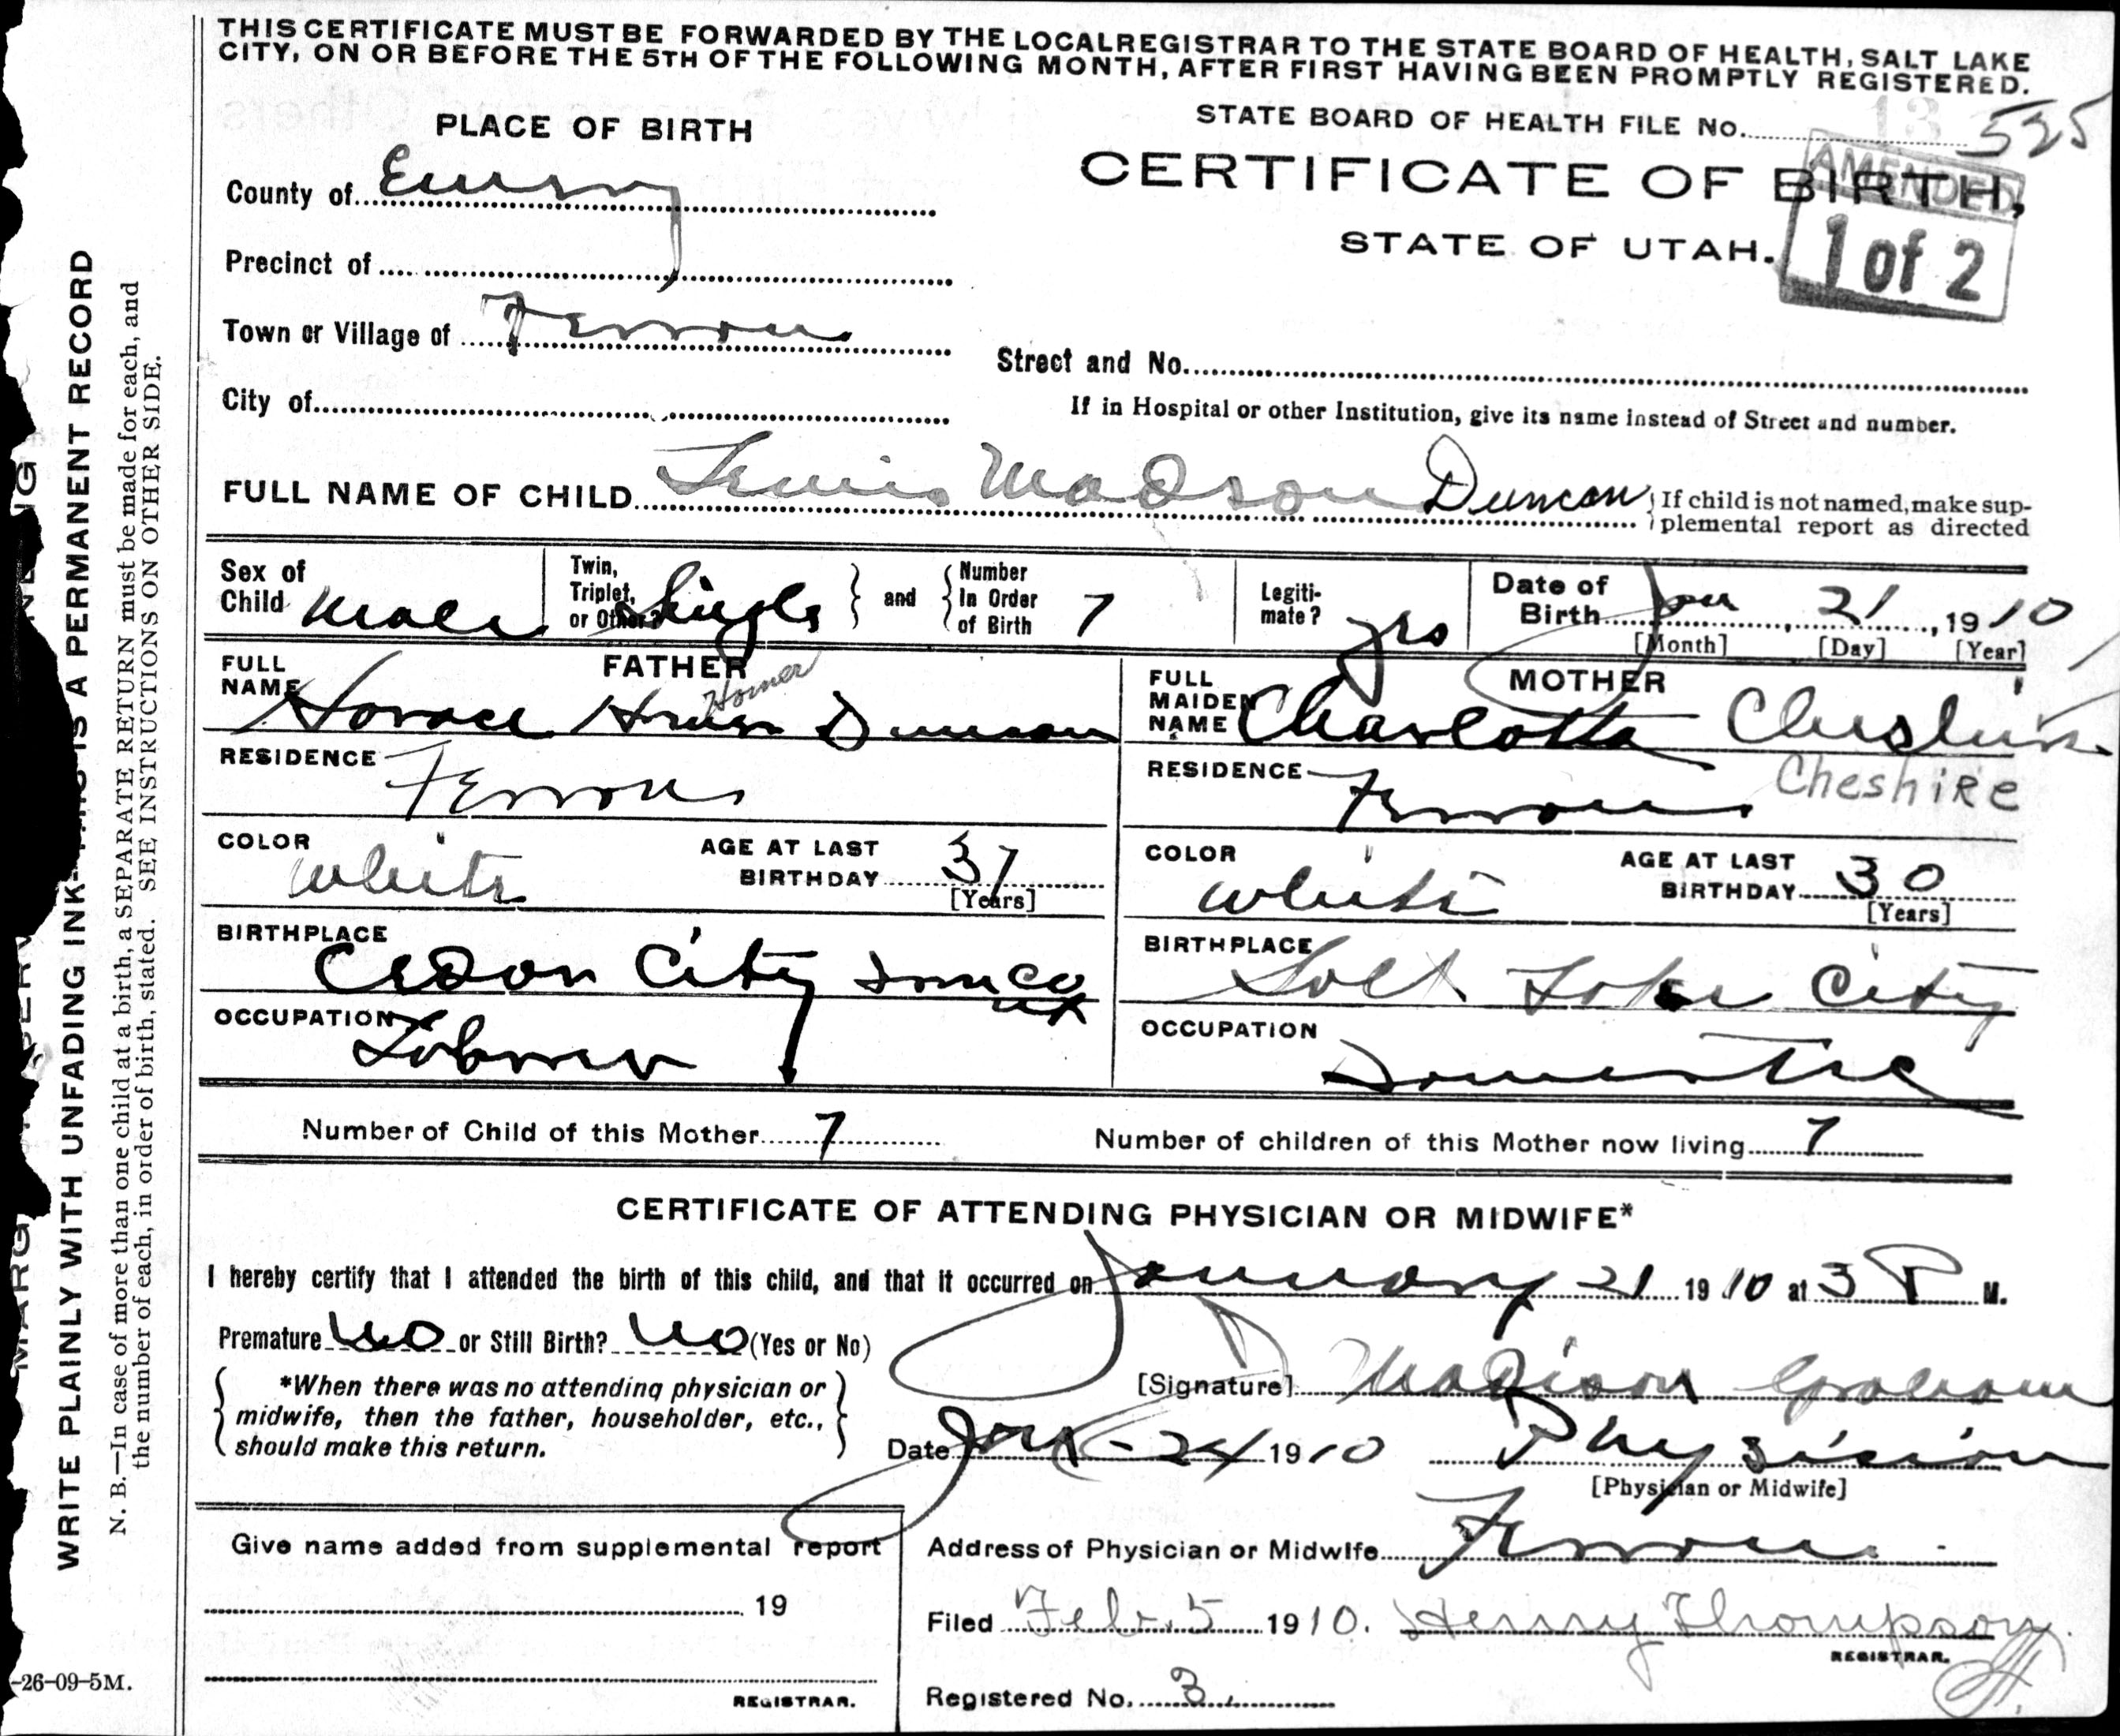 THIS CERTIFICATE MUST BE FORWARDED BY THE LOCAL REGISTRAR TO THE STATE BOARD OF HEALTH, SALT LAKE
CITY, ON OR BEFORE THE 5TH OF THE FOLLOWING MONTH, AFTER FIRST HAVING BEEN PROMPTLY REGISTERED.
STATE BOARD OF HEALTH FILE No. 13 525
PLACE OF BIRTH
CERTIFICATE OF BIRTH,
AMENDED
STATE OF UTAH.
1 of 2
County of Emery
Precinct of
Town or Village of Ferron
Street and No.
City of
If in Hospital or other Institution, give its name instead of Street and number.
FULL NAME OF CHILD Lewis Madson Duncan
If child is not named, make sup-
plemental report as directed
Sex of Child Male
Twin, Triplet, or Other? Single and Number In Order of Birth 7
Legiti-mate? yes
Date of Birth Jan 21, 1910
[Month] [Day] [Year]
FATHER
FULL NAME Horace Homer Duncan
Homer
MOTHER
FULL MAIDEN NAME Charlotte Cheshire
Cheshire
RESIDENCE Ferron
RESIDENCE Ferron
COLOR White
AGE AT LAST BIRTHDAY 37
[Years]
COLOR White
AGE AT LAST BIRTHDAY 30
[Years]
BIRTHPLACE Cedar City Iron Co
ut
BIRTHPLACE Salt Lake City
OCCUPATION Laborer
OCCUPATION Domestic
Number of Child of this Mother 7
Number of children of this Mother now living 7
CERTIFICATE OF ATTENDING PHYSICIAN OR MIDWIFE*
I hereby certify that I attended the birth of this child, and that it occurred on January 21 1910 at 3 P M.
Premature No or Still Birth? No (Yes or No)
*When there was no attending physician or
midwife, then the father, householder, etc.,
should make this return.
[Signature] D Madison Graham
Date Jan - 24 1910 Physician
[Physician or Midwife]
Give name added from supplemental report
19
REGISTRAR.
Address of Physician or Midwife Ferron
Filed Feb. 5 1910. Henry Thompson
REGISTRAR.
Registered No. 3
WRITE PLAINLY WITH UNFADING INK—THIS IS A PERMANENT RECORD
N. B.—In case of more than one child at a birth, a SEPARATE RETURN must be made for each, and
the number of each, in order of birth, stated. SEE INSTRUCTIONS ON OTHER SIDE.
-26-09-5M.